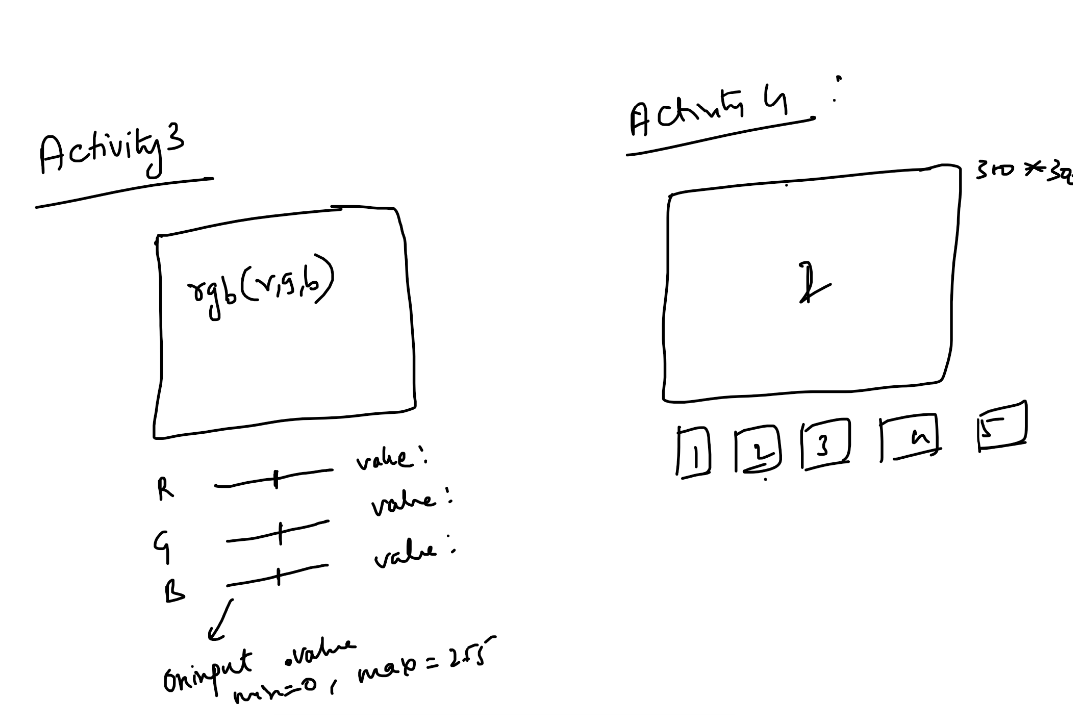 Activity 3
rgb(r,g,b)
R value:
G value:
B value:
oninput .value
min=0, max = 255
Activity 4 :
300 * 30
2
1 2 3 4 5